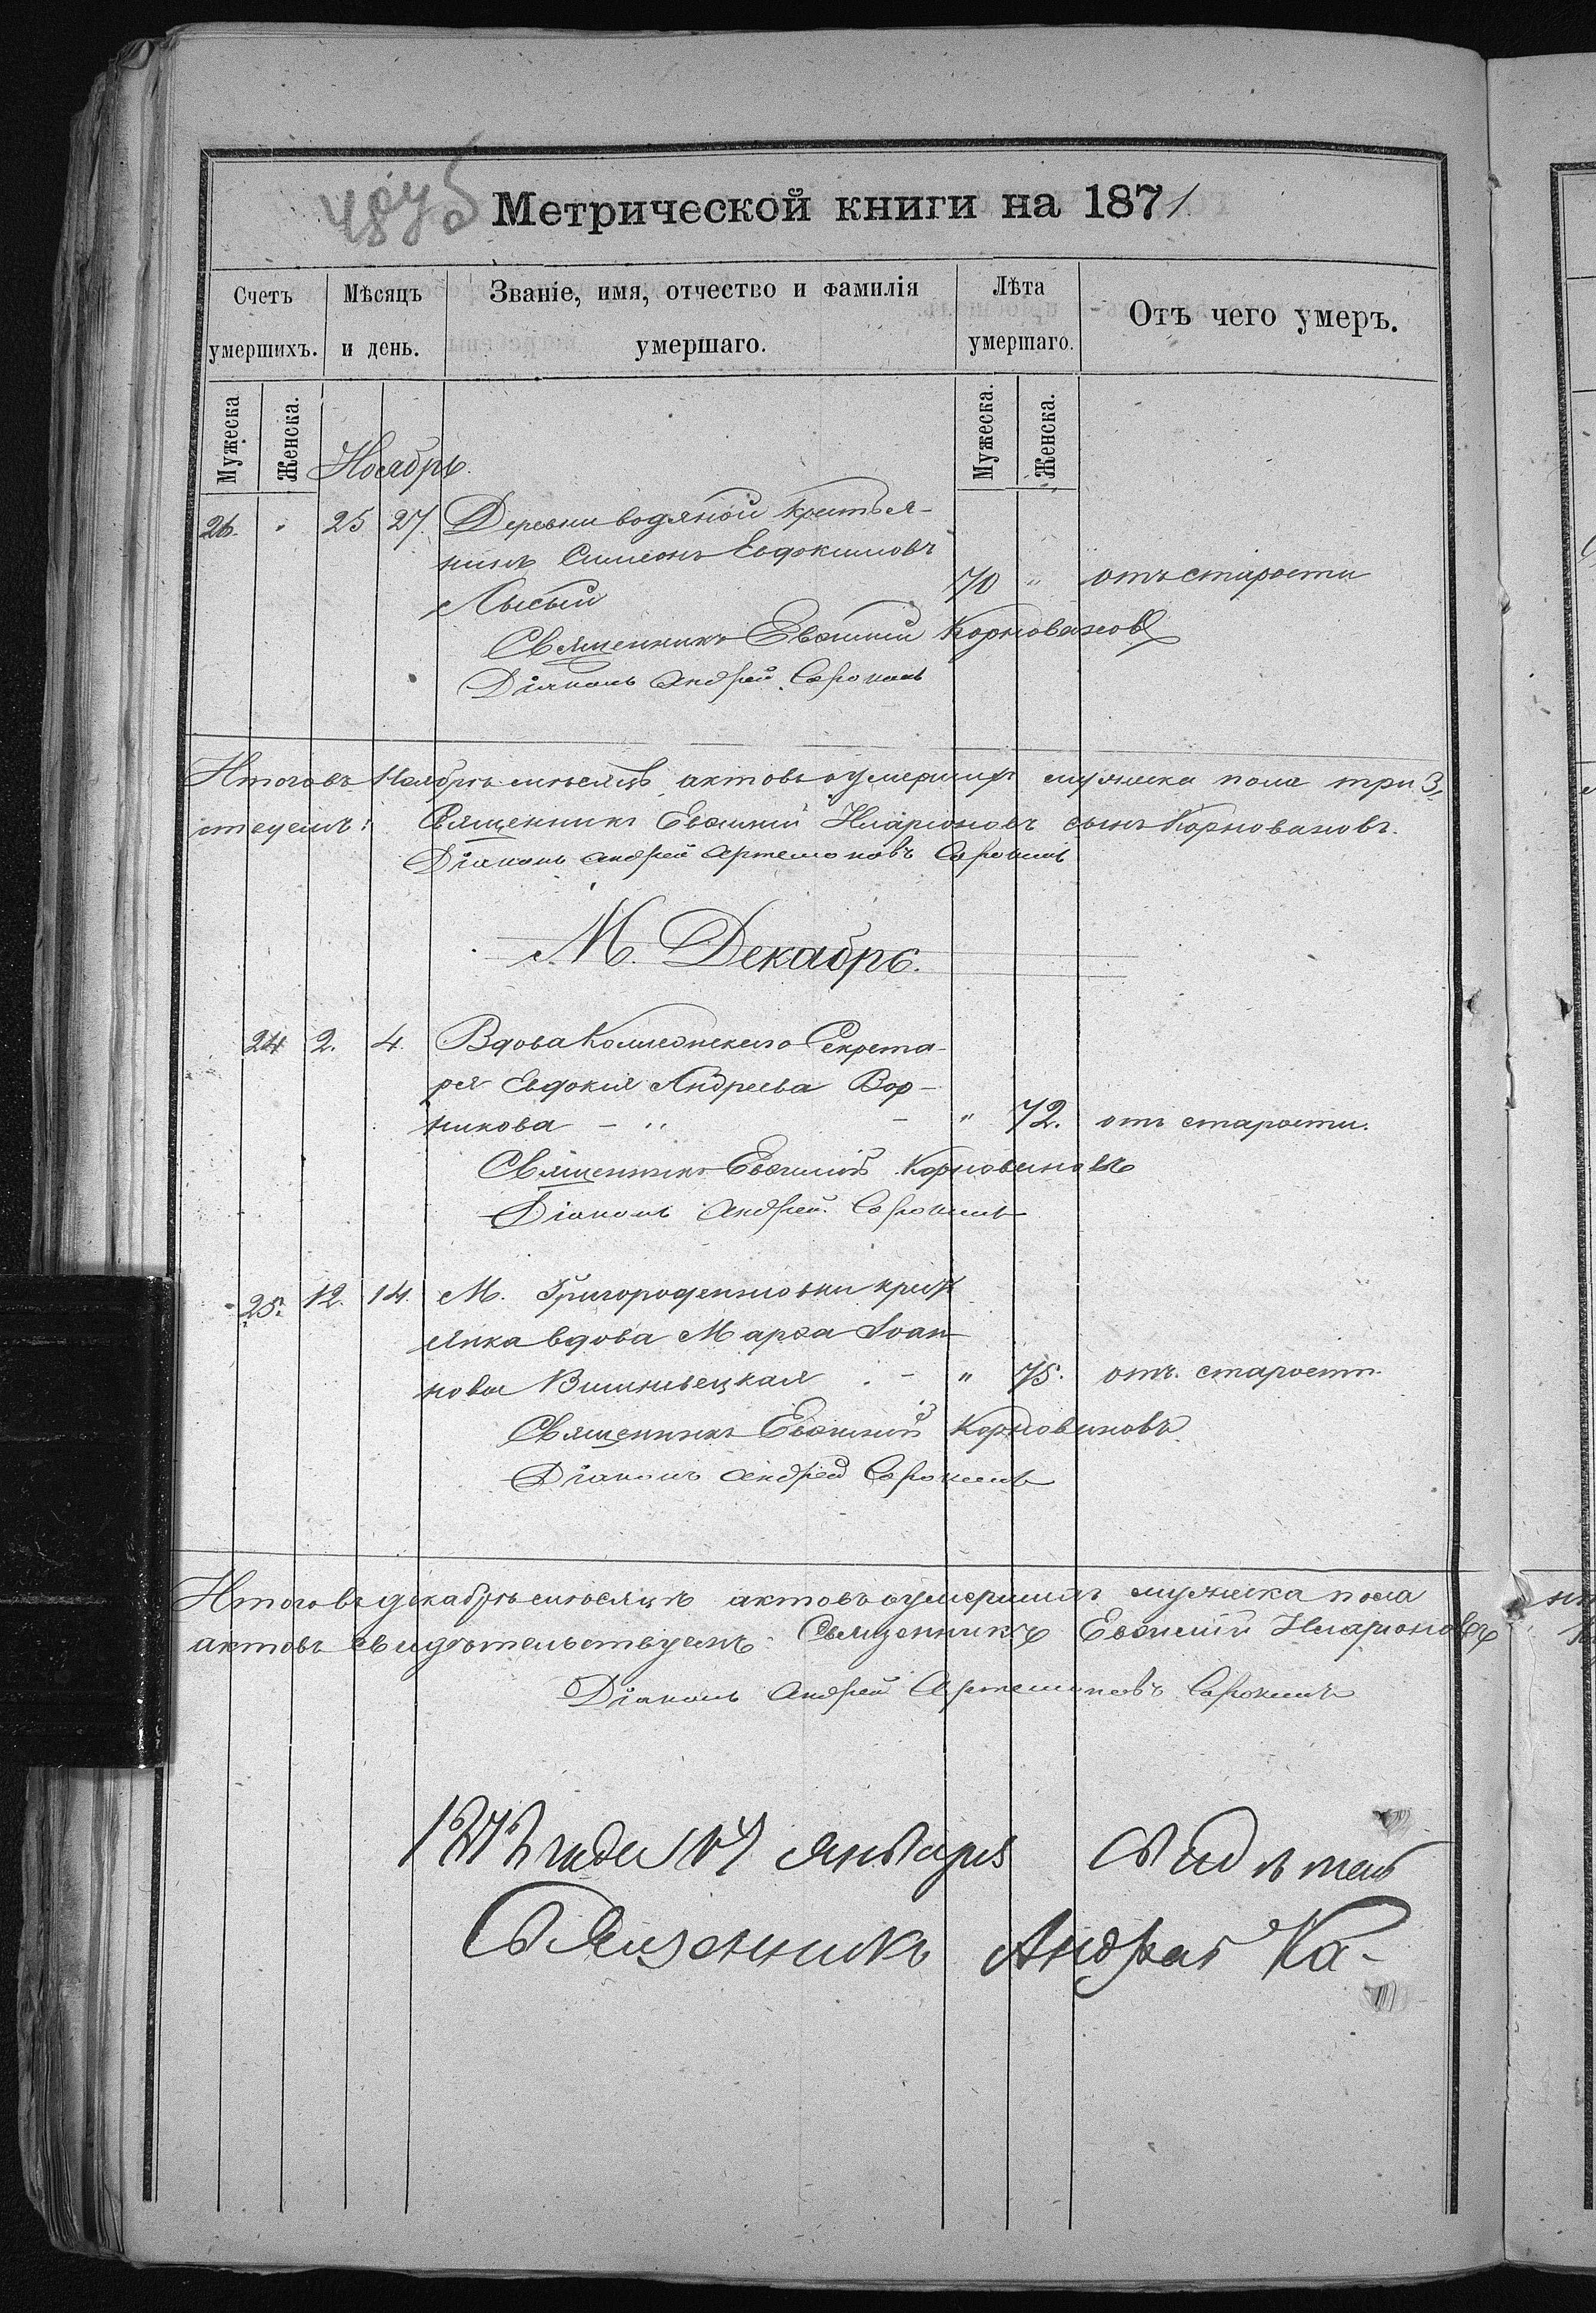 Метрической книги на 1871.
Счетъ умершихъ.
Мѣсяцъ и день.
Званіе, имя, отчество и фамилія умершаго.
Лѣта умершаго.
Отъ чего умеръ.
Мужеска
Женска.
Мужеска.
Женска.
Ноябрь.
26. " 25 27. Деревни водяной крестья-
нинъ Симеонъ Евдокимовъ
Лысый 70 " отъ старости
Священникъ Евфимій Корновановъ
Діаконъ Андрей Сорокинъ
Итого въ Ноябрѣ мѣсяцѣ актовъ о умершихъ мужска пола три 3,
Священникъ Евфимій Иларіоновъ сынъ Корновановъ.
Діаконъ Андрей Артемоновъ Сорокинъ
М. Декабрь.
24 2. 4. Вдова Коллежскаго Секрета-
ря Евдокия Андреева Вор-
никова - " - " 72. отъ старости.
Священникъ Евфимій Корновановъ
Діаконъ Андрей Сорокинъ
25. 12. 14. М. Григороденизовки крест
янка вдова Марѳа Іоан-
нова Вишневецкая - " 75. отъ старости
Священникъ Евфимій Корновановъ
Діаконъ Андрей Сорокинъ
Итого въ декабрѣ мѣсяцѣ актовъ о умершихъ мужеска пола
актовъ свидѣтельствуемъ: Священникъ Евфимій Иларіоновъ
Діаконъ Андрей Артемоновъ Сорокинъ
1872 года января Свидѣтел
Священникъ Андрей Ка-